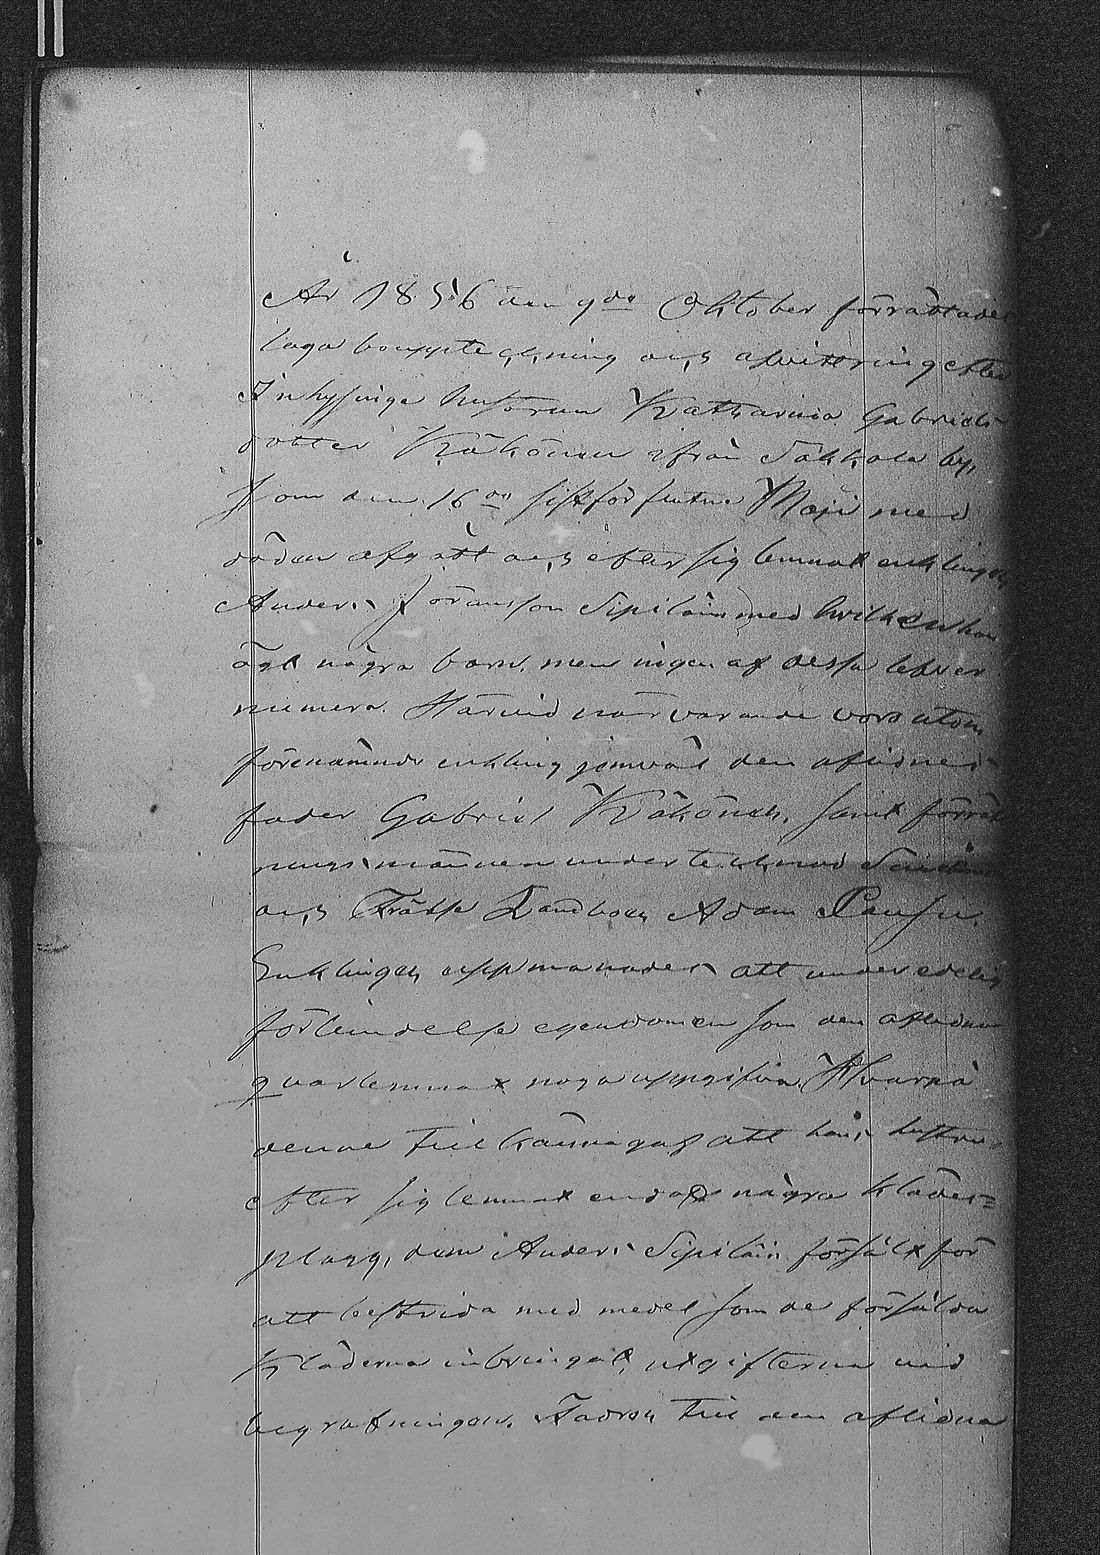 År 1856 den 9de Oktober förrättades
laga bouppteckning och afvittring efter
Inhysinge hustrun Katharina Gabriels
dotter Käkönen ifrån Sakkola by,
som den 16de sistförflutne Maji med
döden afgått och efter sig lemnat enklingen
Anders Joransson Sipiläin med hvilken hon
ägt några barn, men ingen af dessa lefver
numera. Härvid närvarande voro utom
förenämnde enkling jemväl den aflidnes
fader Gabriel Käkönen, samt förrätt
nings männen undertecknad
och Frälse Landboen Adam
Enklingen uppmanades att under edelig
förbindelse egendomen som den aflidna
qvarlemnat noga uppgifva. Hvarpå
denne tillkännagaf att hans hustru
efter sig lemnat endast några kläder=
plagg, dem Anders Sipiläin försålt för
att bestrida med medel som de försålda
kläderna inbringat, utgifterna vid
begrafningen. Fadren till den aflidna